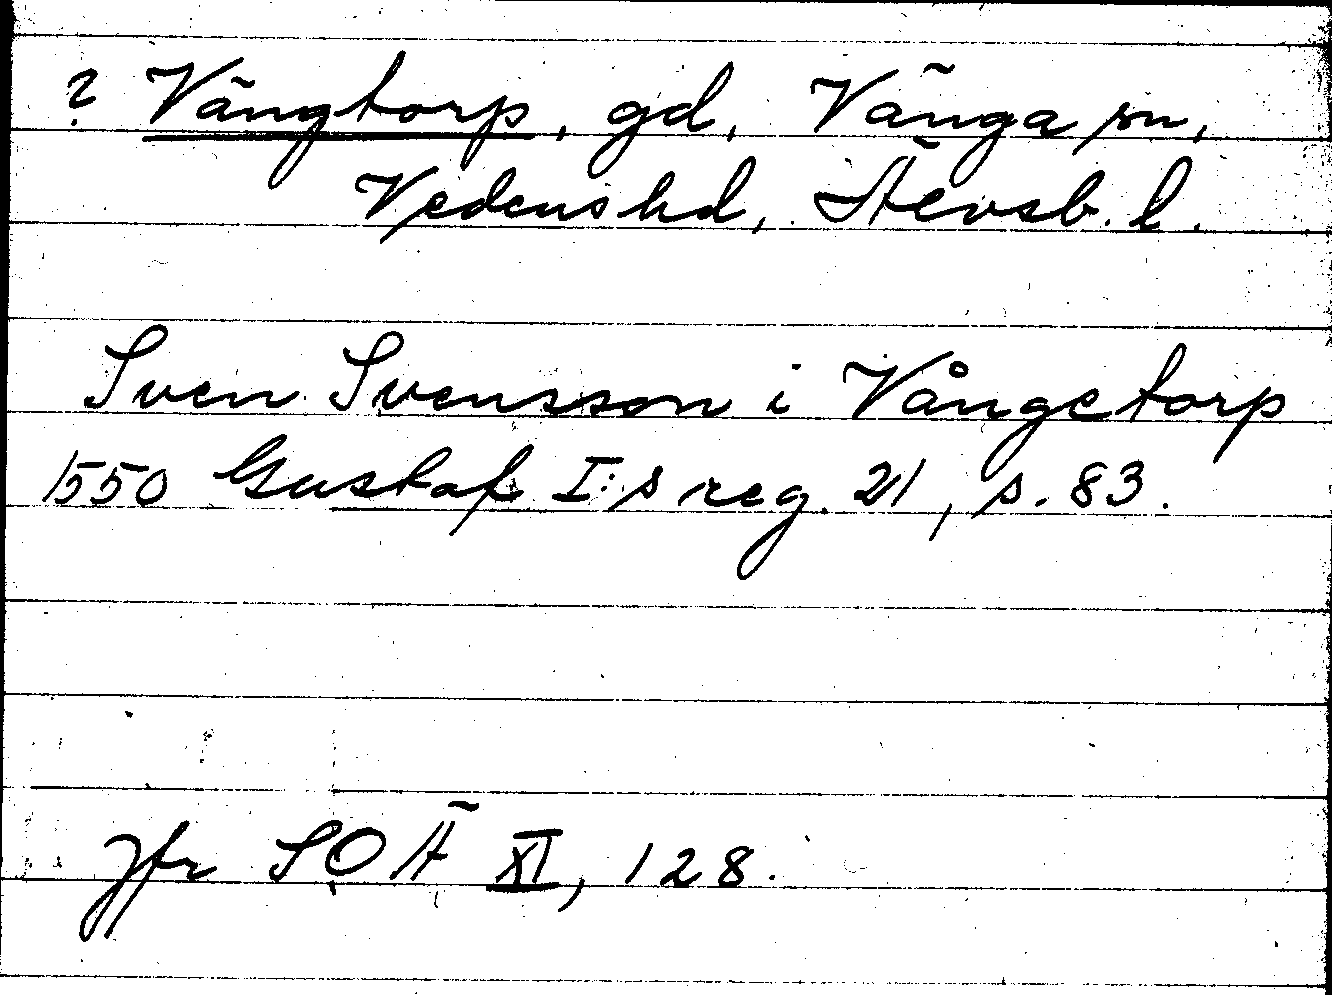 ? Vängtorp, gd, Vänga sn,
Vedens hd, Älvsb. l.
Sven Svensson i Vångetorp
1550 Gustaf I:s reg. 21, s. 83.
Jfr SOÄ XI, 128.